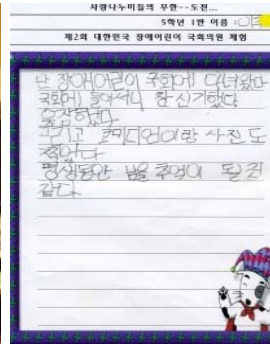 사랑나누미들의 무한--도전...
5학년 1반 이름 :
제2회 대한민국 장애어린이 국회의원 체험
난 장애어린이 국회에 다녀왔다
국회에 들어서니 참 신기했다
웅장했다
그리고 코미디언이랑 사진도
찍었다
평생동안 남을 추억이 될 것
같다.